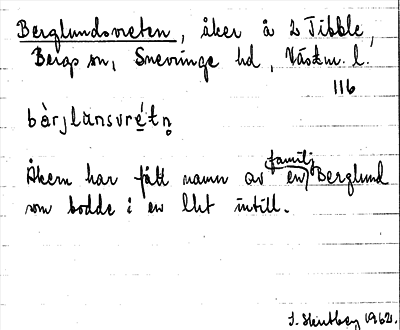 Berglundsvreten, åker å 2 Tibble,
Bergs sn, Snevringe hd, Västm. l.
116
bàrjlənsvrẹ́tn̥
familj
Åkern har fått namn av en Berglund
som bodde i en lht intill.
1962.